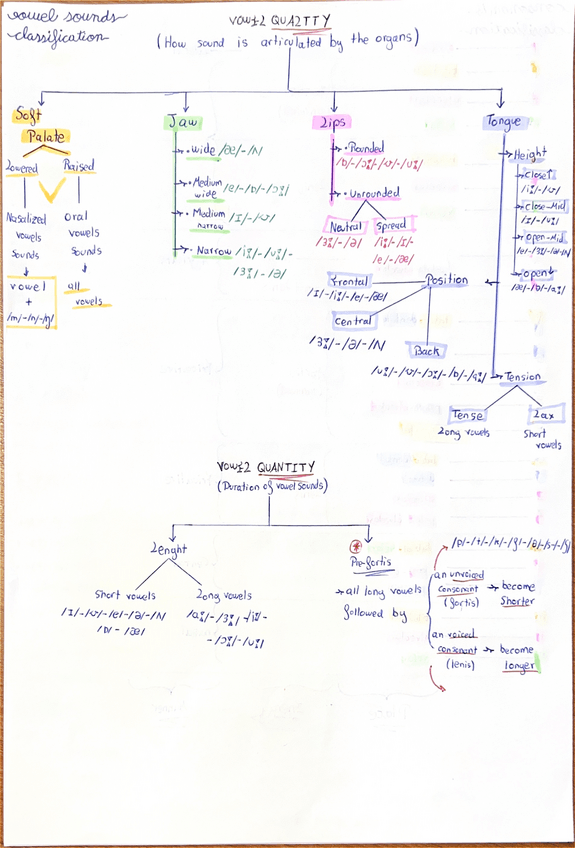 vowel sounds
classification
VOWEL QUALITY
(How sound is articulated by the organs)
Soft
Palate
Lowered
Raised
Nasalized
vowels
sounds
vowel
+
/m/-/n/-/ŋ/
oral
vowels
sounds
all
vowels
Jaw
• Wide /æ/-/ʌ/
• Medium
wide /e/-/ɒ/-/ɔː/
• Medium
narrow /ɪ/-/ʊ/
• Narrow /iː/-/uː/-
/ɜː/-/ə/
Lips
• Rounded
/ɒ/-/ɔː/-/ʊ/-/uː/
• Unrounded
Neutral
/ɜː/-/ə/
Spread
/iː/-/ɪ/-
/e/-/æ/
Tongue
Height
Close↑
/iː/-/ʊ/
Close-Mid
/ɪ/-/uː/
Open-Mid
/e/-/ɜː/-/ə/-/ʌ/
open↓
/æ/-/ɒ/-/ɑː/
Position
Frontal
/ɪ/-/iː/-/e/-/æ/
Central
/ɜː/-/ə/-/ʌ/
Back
/uː/-/ʊ/-/ɔː/-/ɒ/-/ɑː/
Tension
Tense
Long vowels
Lax
Short
vowels
VOWEL QUANTITY
(Duration of vowel sounds)
Lenght
Short vowels
/ɪ/-/ʊ/-/e/-/ə/-/ʌ/
/ɒ/-/æ/
Long vowels
/ɑː/-/ɜː/-/iː/-
-/ɔː/-/uː/
*
Pre-fortis
→ all long vowels
followed by
an unvoiced
consonant → become
(fortis) Shorter
an voiced
consonant → become
(lenis) longer